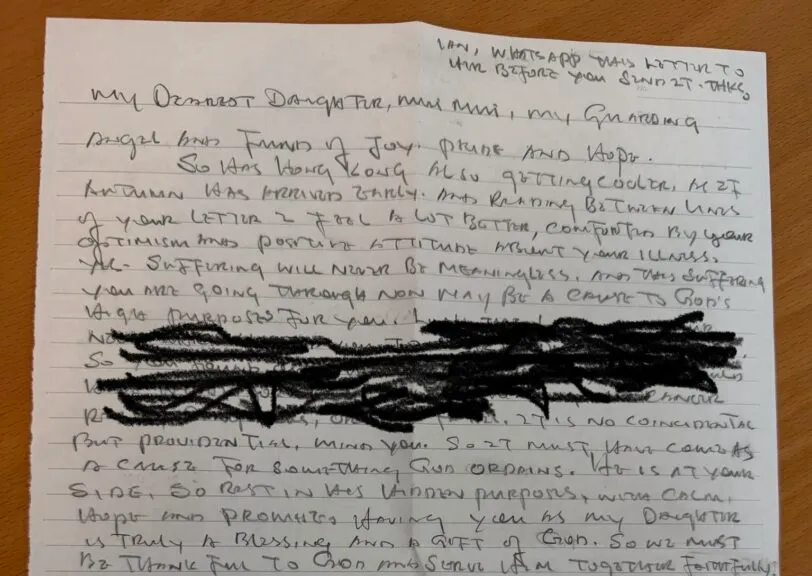 IAN, WHATSAPP THIS LETTER TO
HER BEFORE YOU SEND IT. THKS.
MY DEAREST DAUGHTER, MUI MUI, MY GUARDING
ANGEL AND FUND OF JOY. PRIDE AND HOPE.
SO HAS HONG KONG ALSO GETTING COOLER, AS IF
AUTUMN HAS ARRIVED EARLY. AND READING BETWEEN LINES
OF YOUR LETTER I FEEL A LOT BETTER, COMFORTED BY YOUR
OPTIMISM AND POSITIVE ATTITUDE ABOUT YOUR ILLNESS.
YES. SUFFERING WILL NEVER BE MEANINGLESS. AND THIS SUFFERING
YOU ARE GOING THROUGH NOW MAY BE A CAUSE TO GOD'S
HIGH PURPOSES FOR YOU.
SO YOU
CANCER
IT IS NO COINCIDENTAL
BUT PROVIDENTIAL, MIND YOU. SO IT MUST HAVE COME AS
A CAUSE FOR SOMETHING GOD ORDAINS. HE IS AT YOUR
SIDE, SO REST IN HIS HIDDEN PURPOSES, WITH CALM,
HOPE AND PROMISES HAVING YOU AS MY DAUGHTER
IS TRULY A BLESSING AND A GIFT OF GOD. SO WE MUST
BE THANKFUL TO GOD AND SERVE HIM TOGETHER FAITHFULLY.